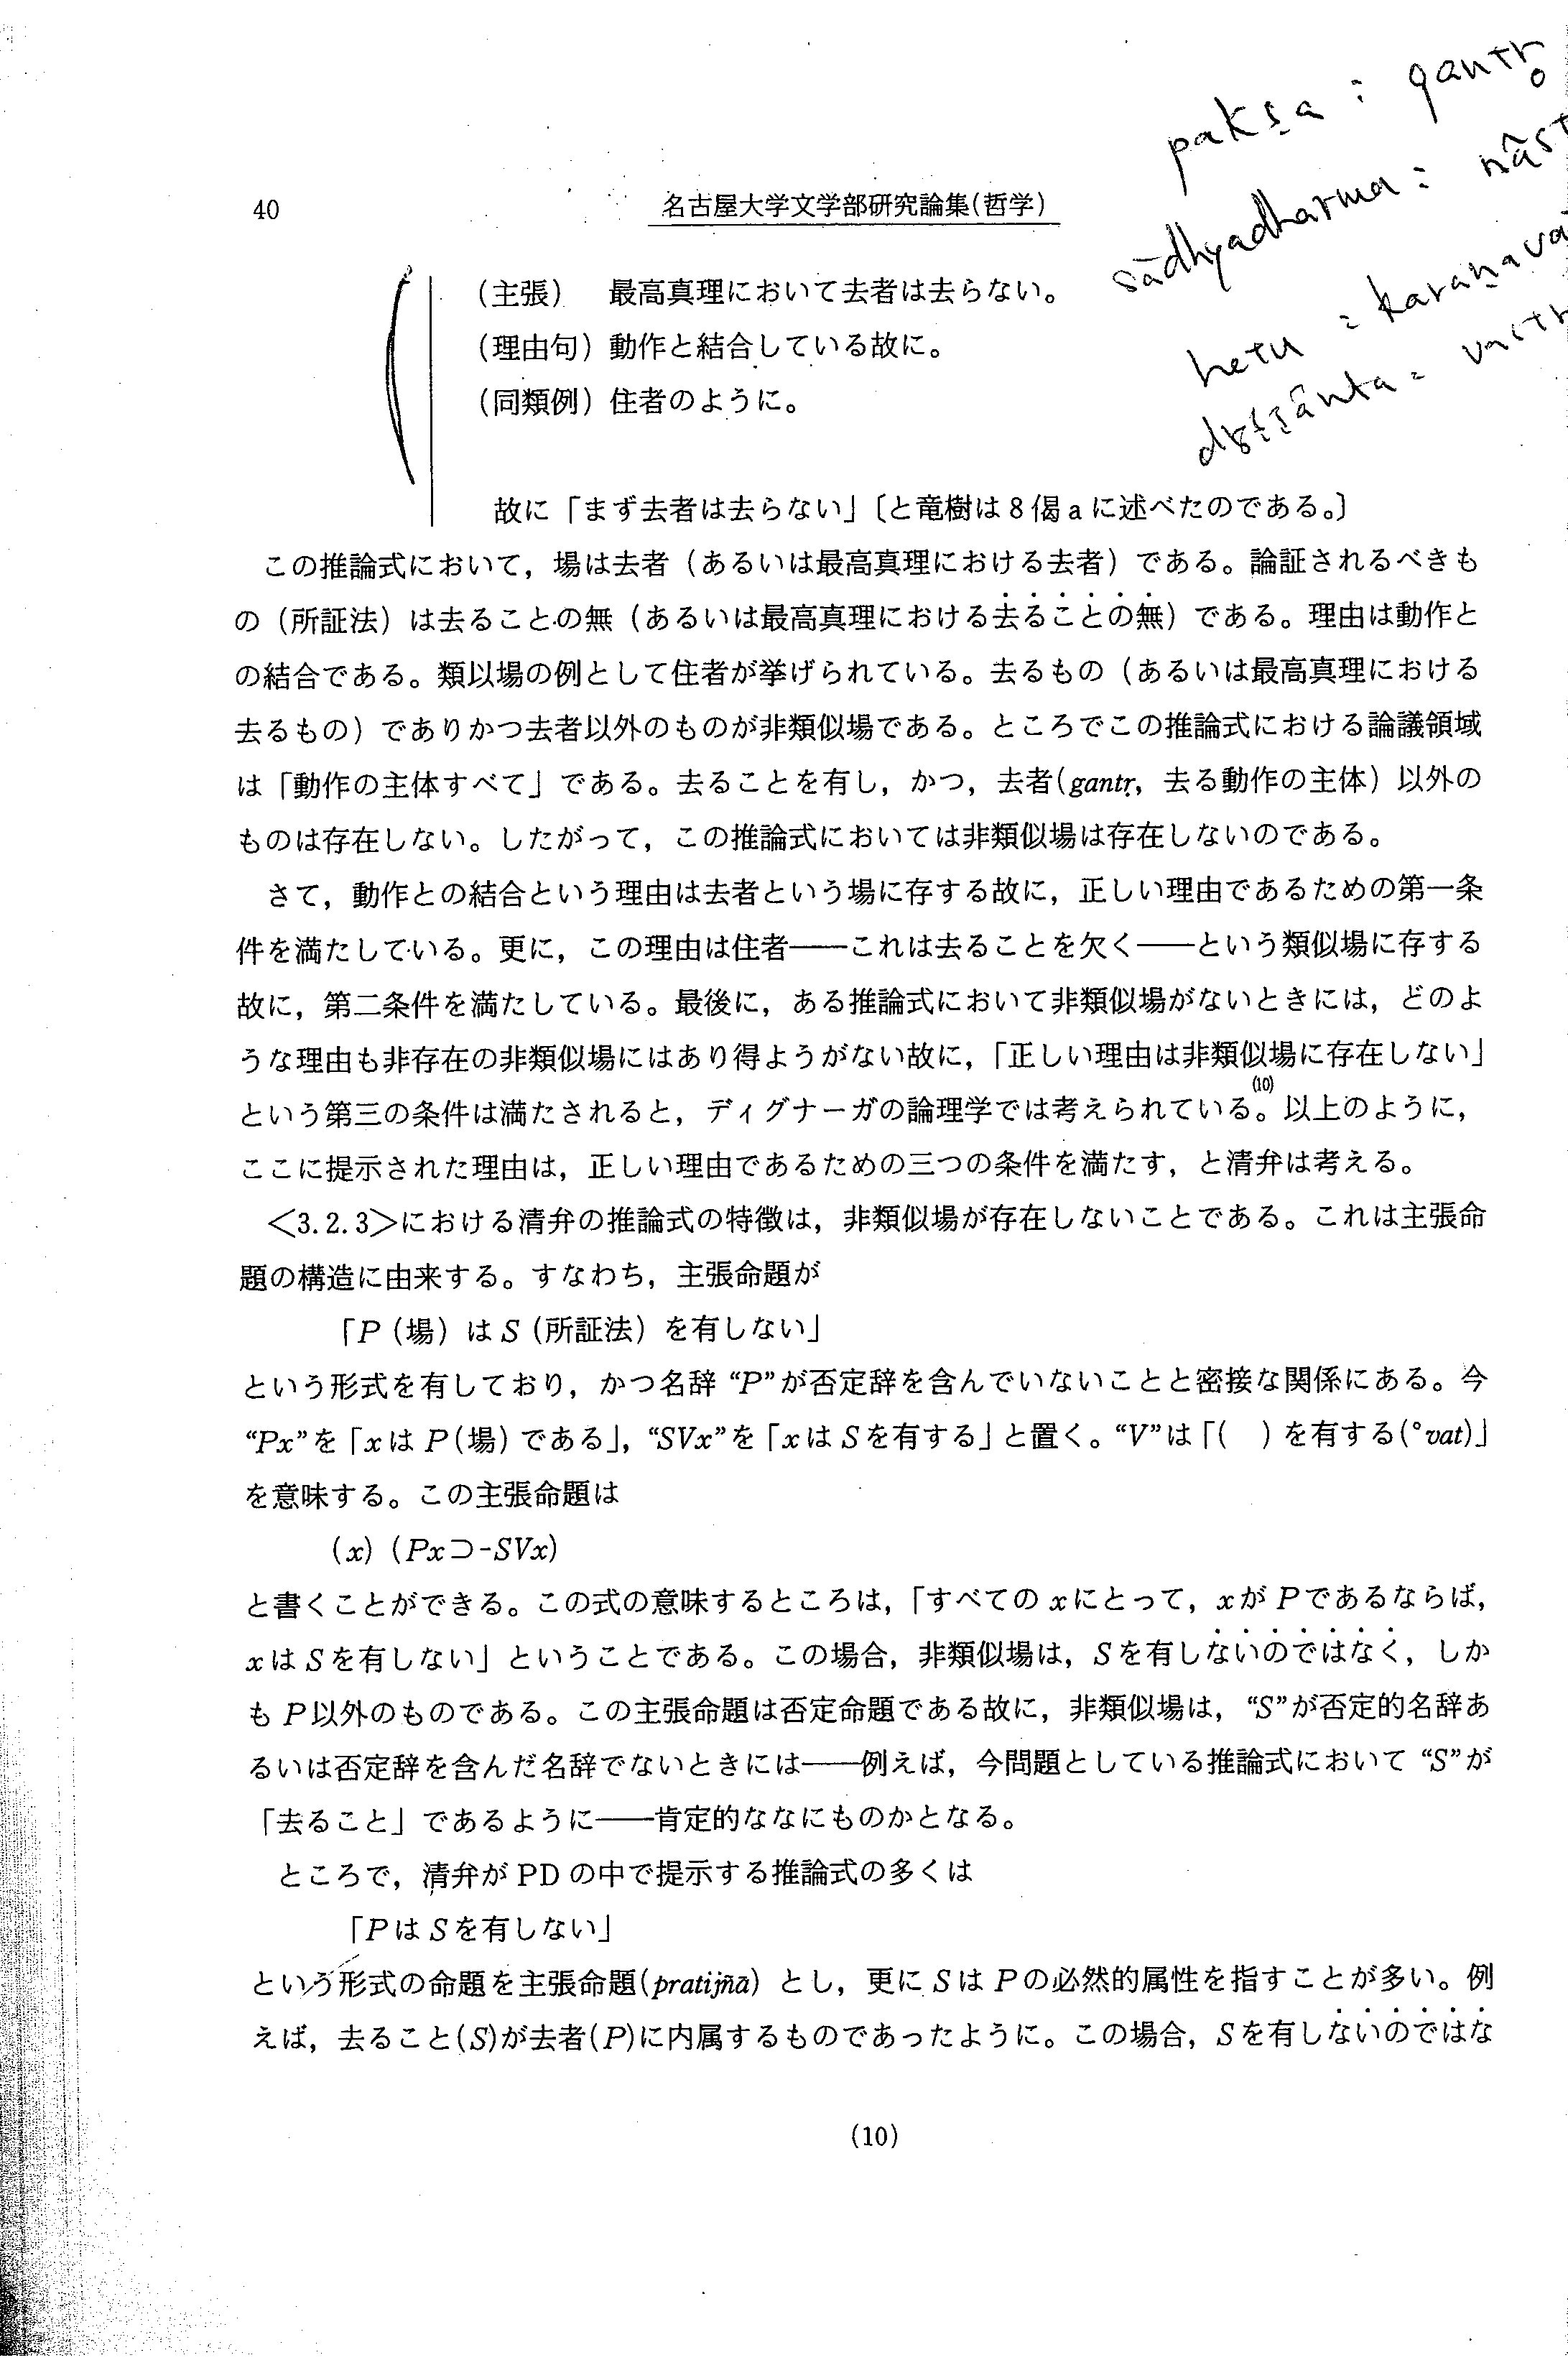 pakṣa : gantṛ
sādhyadharma :
hetu :
dṛṣṭānta :
40
名古屋大学文学部研究論集(哲学)
(主張) 最高真理において去者は去らない。
(理由句) 動作と結合している故に。
(同類例) 住者のように。
故に「まず去者は去らない」〔と竜樹は8偈aに述べたのである。〕
この推論式において，場は去者（あるいは最高真理における去者）である。論証されるべきも
の（所証法）は去ることの無（あるいは最高真理における去ることの無）である。理由は動作と
の結合である。類以場の例として住者が挙げられている。去るもの（あるいは最高真理における
去るもの）でありかつ去者以外のものが非類似場である。ところでこの推論式における論議領域
は「動作の主体すべて」である。去ることを有し，かつ，去者(gantṛ, 去る動作の主体）以外の
ものは存在しない。したがって，この推論式においては非類似場は存在しないのである。
さて，動作との結合という理由は去者という場に存する故に，正しい理由であるための第一条
件を満たしている。更に，この理由は住者――これは去ることを欠く――という類似場に存する
故に，第二条件を満たしている。最後に，ある推論式において非類似場がないときには，どのよ
うな理由も非存在の非類似場にはあり得ようがない故に，「正しい理由は非類似場に存在しない」
という第三の条件は満たされると，ディグナーガの論理学では考えられている。(10) 以上のように，
ここに提示された理由は，正しい理由であるための三つの条件を満たす，と清弁は考える。
＜3.2.3＞における清弁の推論式の特徴は，非類似場が存在しないことである。これは主張命
題の構造に由来する。すなわち，主張命題が
「P（場）はS（所証法）を有しない」
という形式を有しており，かつ名辞“P”が否定辞を含んでいないことと密接な関係にある。今
“Px”を「xはP(場)である」，“SVx”を「xはSを有する」と置く。“V”は「( )を有する(°vat)」
を意味する。この主張命題は
(x) (Px⊃-SVx)
と書くことができる。この式の意味するところは，「すべてのxにとって，xがPであるならば，
xはSを有しない」ということである。この場合，非類似場は，Sを有しないのではなく，しか
もP以外のものである。この主張命題は否定命題である故に，非類似場は，“S”が否定的名辞あ
るいは否定辞を含んだ名辞でないときには――例えば，今問題としている推論式において“S”が
「去ること」であるように――肯定的ななにものかとなる。
ところで，清弁がPDの中で提示する推論式の多くは
「PはSを有しない」
という形式の命題を主張命題(pratijñā）とし，更にSはPの必然的属性を指すことが多い。例
えば，去ること(S)が去者(P)に内属するものであったように。この場合，Sを有しないのではな
(10)